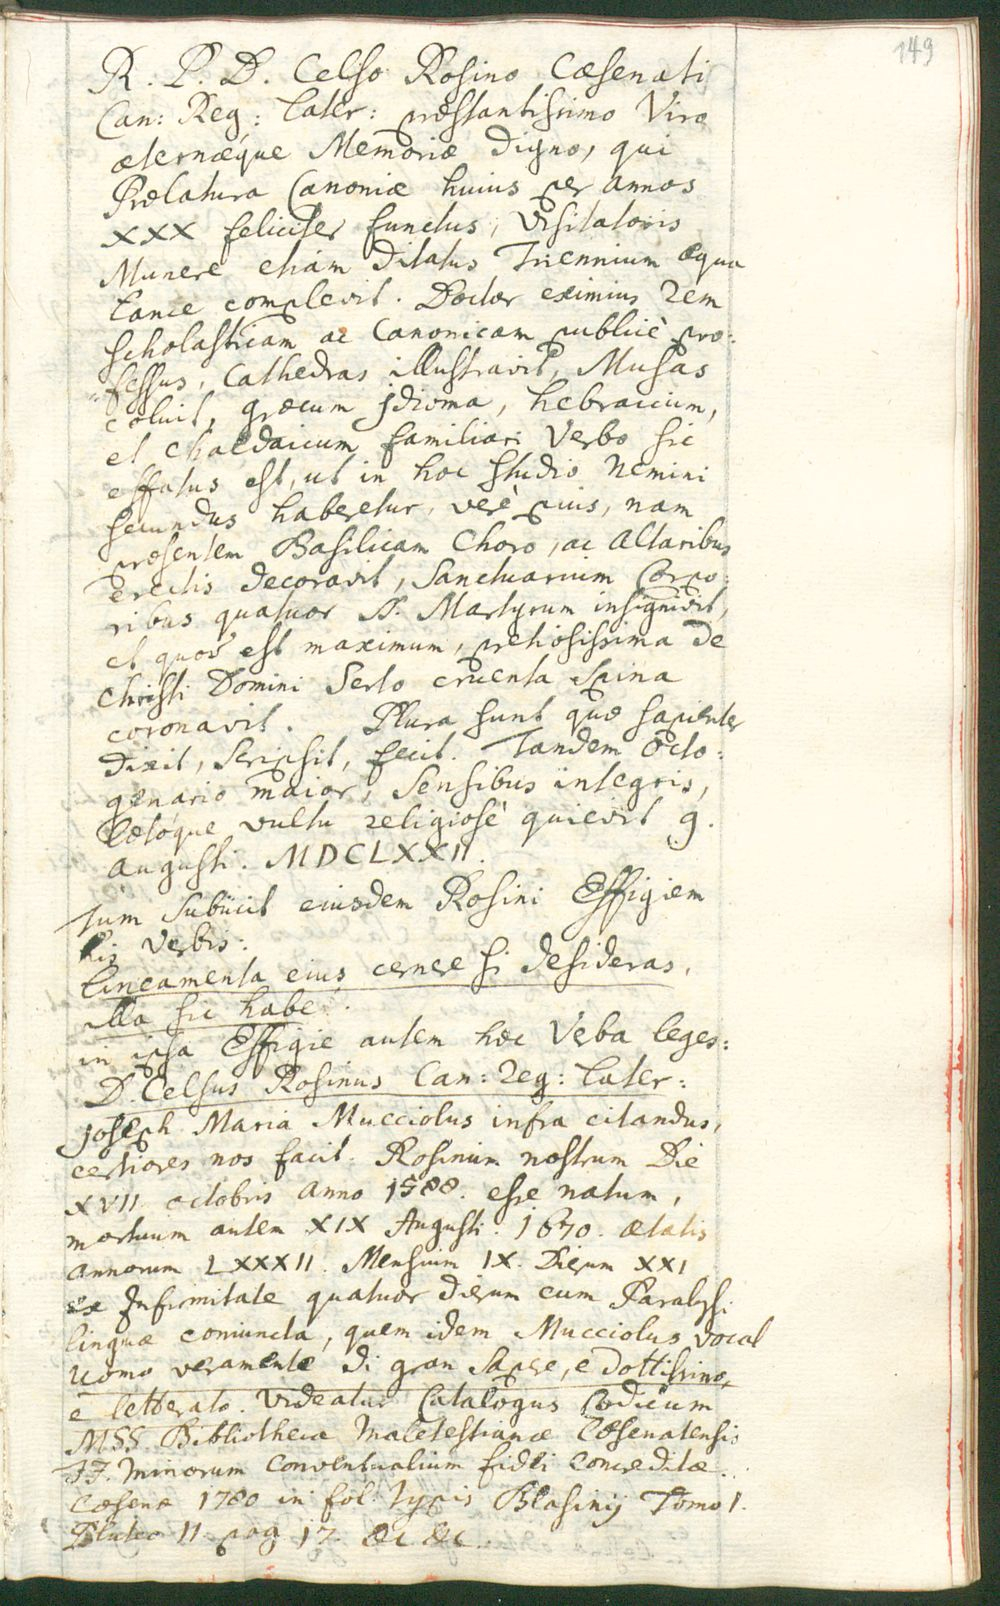 149
R. P. D. Celso Rosino Cæsenati
Can: Reg: Later: præstantissimo Viro
æternæque Memoriæ digno, qui
Prælatura Canoniæ huius per annos
XXX feliciter functus, Visitatoris
Munere etiam ditatus Triennium æqua
Lance complevit. Doctor eximius rem
scholasticam ac Canonicam publicè pro:
fessus, Cathedras illustravit, Musas
coluit, græcum jdioma, hebraicum,
et chaldaicum familiari Verbo sic
effatus est, ut in hoc studio Nemini
secundus haberetur, verè pius, nam
præsentem Basilicam Choro, ac Altaribus
erectis decoravit, Sanctuarium Corpo:
ribus quatuor SS. Martyrum insignivit,
et quod est maximum, pretiosissima de
Christi Domini Serto cruenta Spina
coronavit. Plura sunt quæ sapienter
dixit, Scripsit, fecit. Tandem octo:
genario maior, Sensibus integris,
lætóque vultu religiosè quievit 9.
Augusti. MDCLXXII.
Tum Subiicit eiusdem Rosini Effigiem
his Verbis:
Lineamenta eius cernere si desideras,
illa sic habe.
in ipsa Effigie autem hæc Verba leges:
D. Celsus Rosinus Can: Reg: Later:
Joseph Maria Mucciolus infra citandus,
certiores nos facit Rosinum nostrum Die
XVII octobris Anno 1588. esse natum,
mortuum autem XIX Augusti 1670. ætatis
annorum LXXXII. Mensium IX. Dierum XXI
ex Infirmitate quatuor dierum cum Paralysi
linguæ coniuncta, quem idem Mucciolus vocat
Uomo veramente di gran Sapere, e dottissimo,
e letterato. Videatur Catalogus Codicum
MSS. Bibliothecæ Malatestianæ Cæsenatensis
FF. Minorum Conventualium fidei concreditæ.
Cæsenæ 1780 in fol. Typis Blasinij Tomo I.
Pluteo II. pag 17. &c &c.